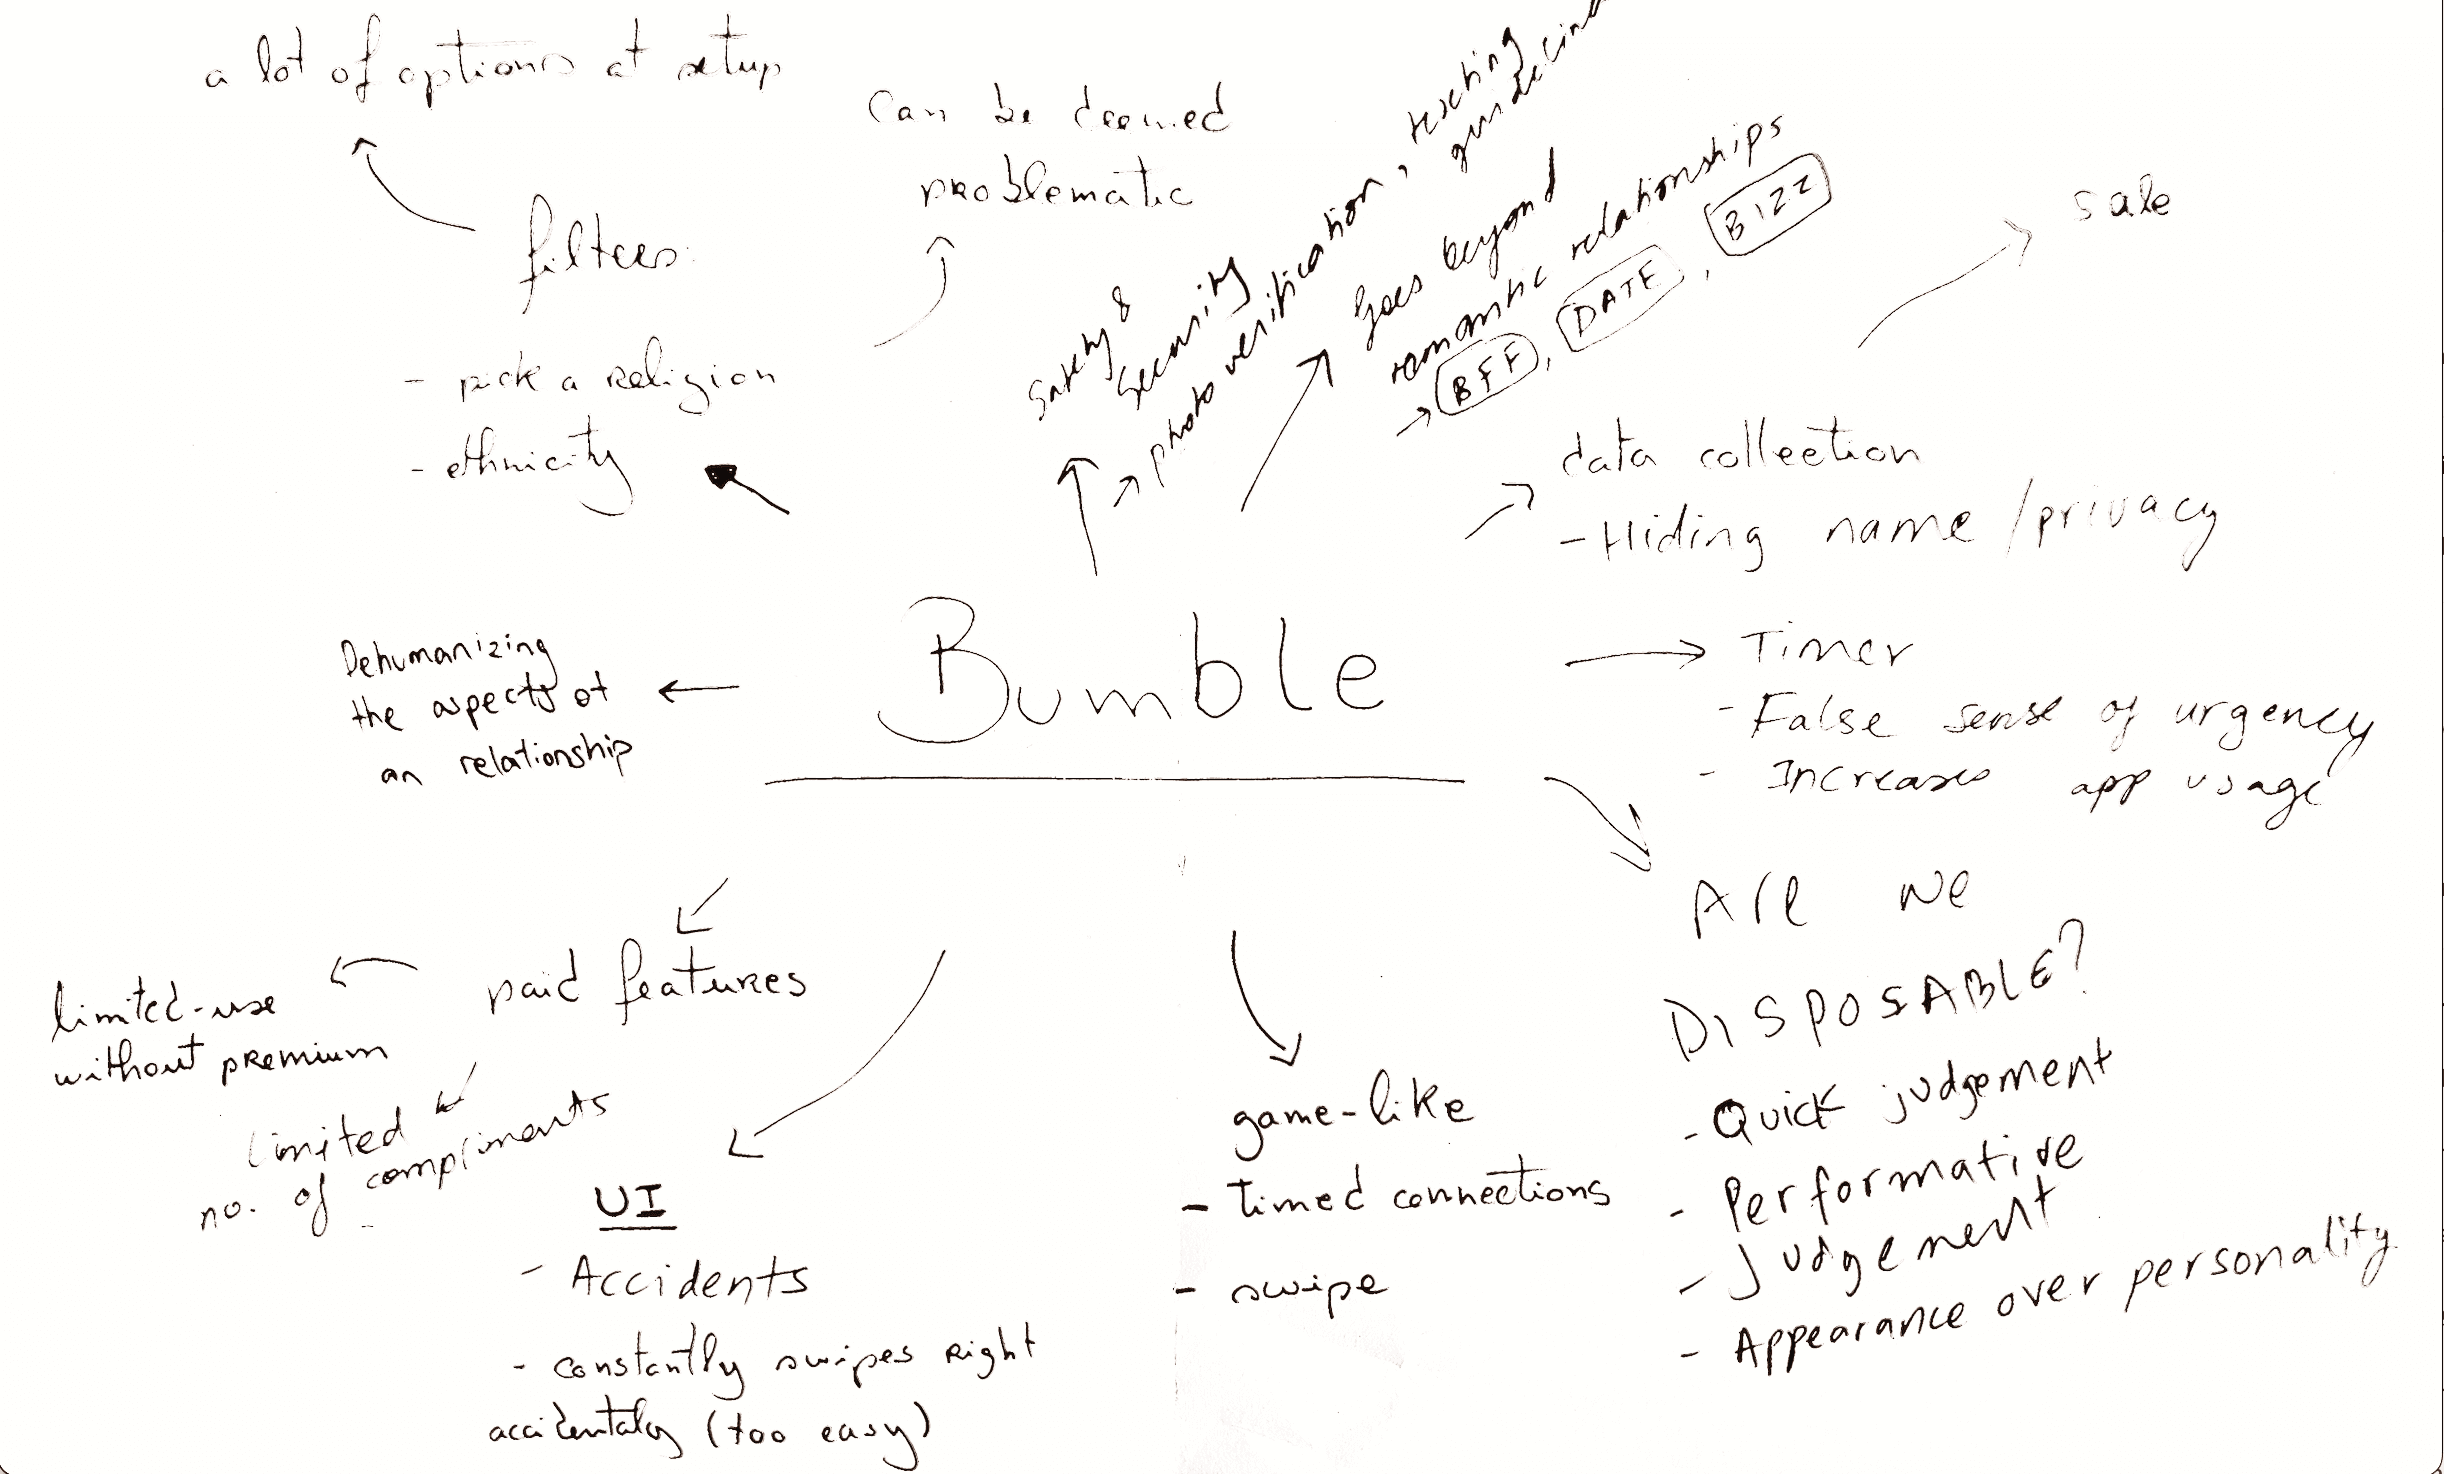 a lot of options at setup
can be deemed
problematic
filters:
- pick a religion
- ethnicity
Safety &
Security
→ photo verification, texting
Goes beyond
romantic relationships
→ BFF, DATE, BIZZ
sale
data collection
- Hiding name / privacy
Bumble
Dehumanizing
the aspects of
an relationship
Timer
- False sense of urgency
- Increases app usage
Are we
DISPOSABLE?
- Quick judgement
- Performative
- Judgement
- Appearance over personality
paid features
limited-use
without premium
limited
no. of compliments
UI
- Accidents
- constantly swipes right
accidentaly (too easy)
game-like
- timed connections
- swipe